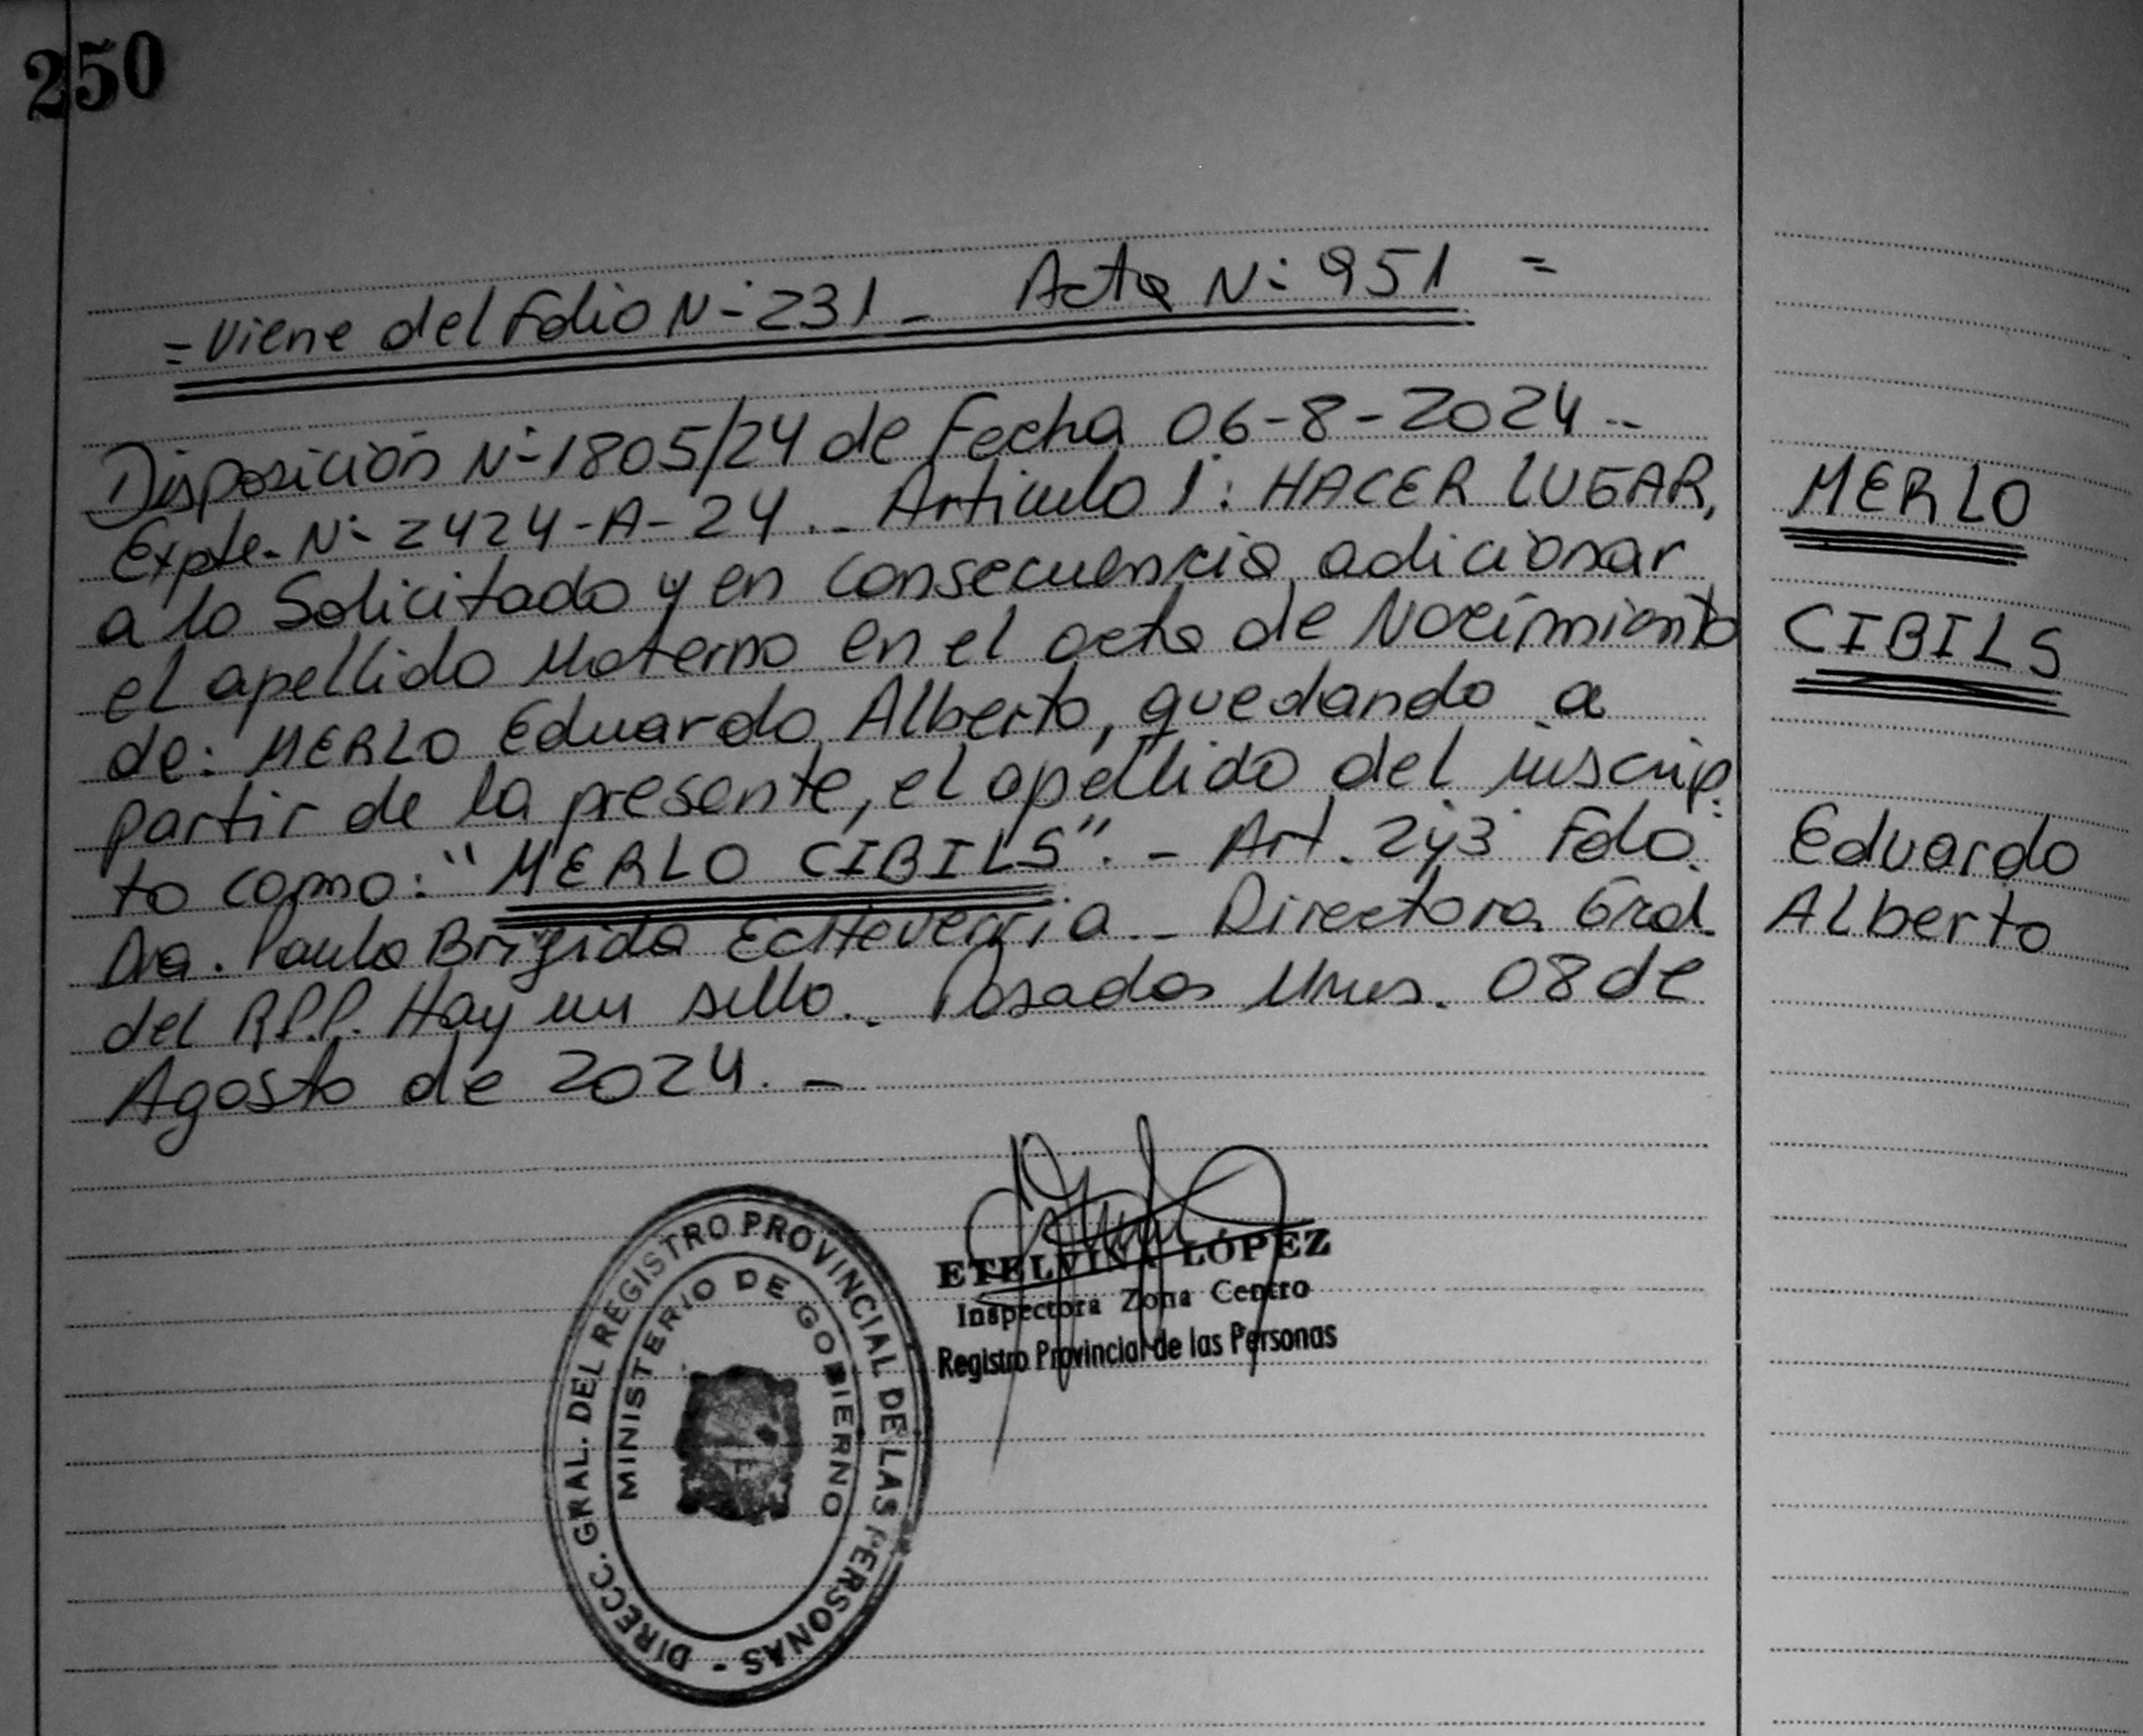 250
= Viene del Folio N° 231 - Acta N° 951 =
Disposición N° 1805/24 de Fecha 06-8-2024 --
Expte. N° 2424-A-24.- Articulo 1°: HACER LUGAR,
a lo Solicitado y en consecuencia, adicionar
el apellido Materno en el acta de Nacimiento
de: MERLO Eduardo Alberto, quedando a
partir de la presente, el apellido del inscrip-
to como: "MERLO CIBILS". - Art. 2y3 Fdo:
Dra. Paula Brigida Echeverria - Directora Gral.
del R.P.P. Hay un sello.. Posadas Mnes. 08 de
Agosto de 2024. -
MERLO
CIBILS
Eduardo
Alberto
DIRECC. GRAL. DEL REGISTRO PROVINCIAL DE LAS PERSONAS -
MINISTERIO DE GOBIERNO
ETELVINA LÓPEZ
Inspectora Zona Centro
Registro Provincial de las Personas